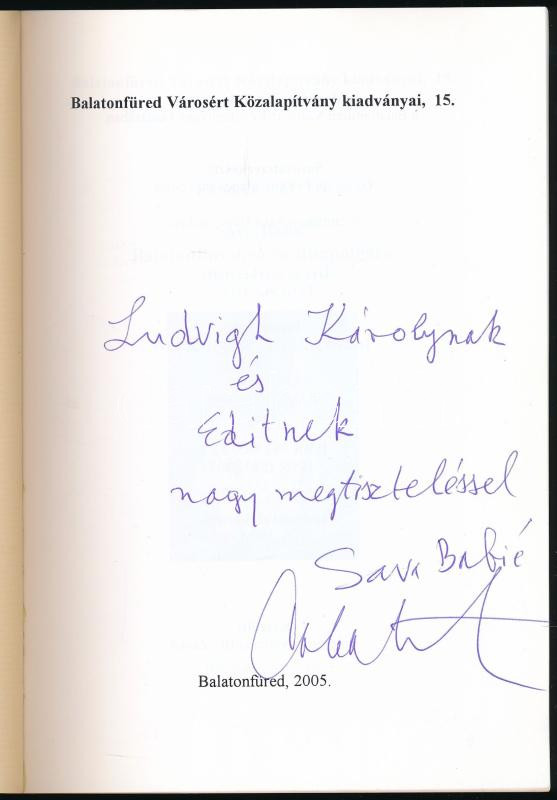 Balatonfüred Városért Közalapítvány kiadványai, 15.
Ludvigh Károlynak
és
Editnek
nagy megtiszteléssel
Sava Babić
Balatonfüred, 2005.